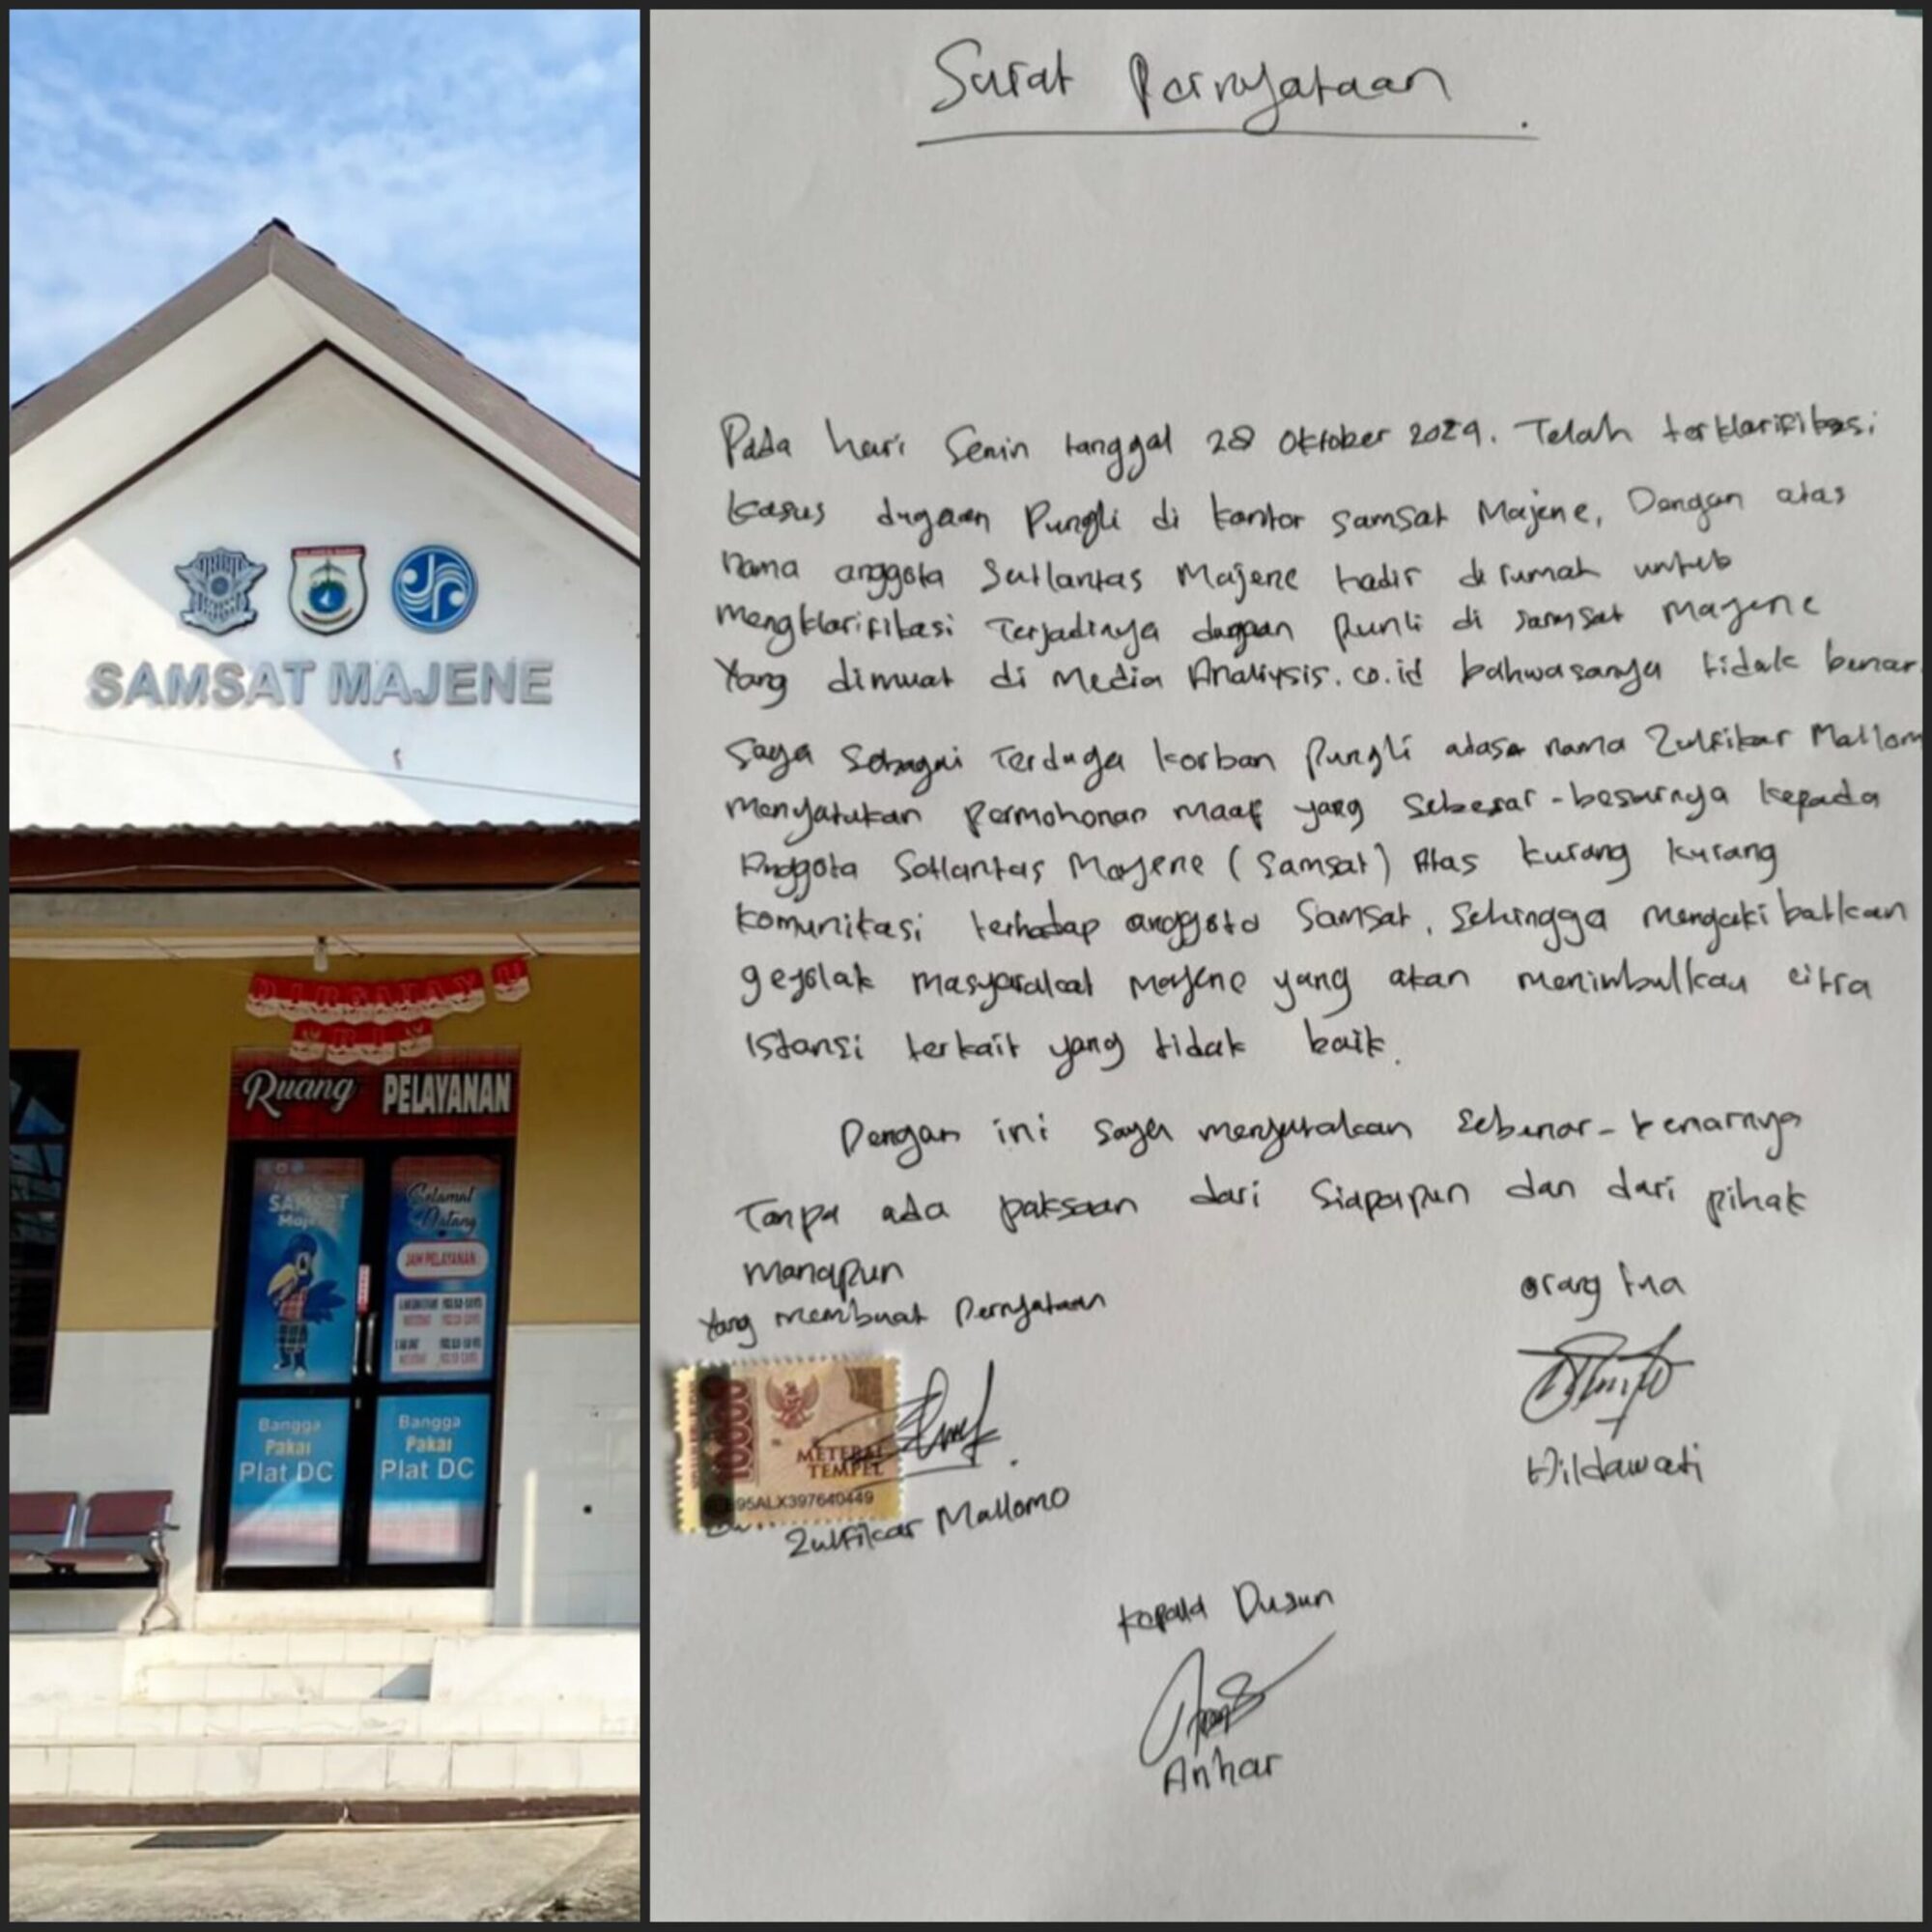 SAMSAT MAJENE
DIRGAHAYU
Ruang PELAYANAN
SAMSAT
Selamat
Datang
JAM PELAYANAN
Bangga
Pakai
Plat DC
Bangga
Pakai
Plat DC
Surat Pernyataan
Pada hari Senin tanggal 28 Oktober 2024. Telah terklarifikasi
Kasus dugaan Pungli di kantor samsat Majene, Dengan atas
nama anggota Satlantas Majene hadir di rumah untuk
mengklarifikasi Terjadinya dugaan punli di samsat majene
Yang dimuat di Media Analiysis.co.id bahwasanya tidak benar.
Saya Sebagai Terduga korban Pungli atasa nama Zulfikar Mallom
Menyatukan Permohonan maaf yang Sebesar-besarnya kepada
Anggota Satlantas Majene (Samsat) Atas kurang kurang
komunikasi terhadap anggota Samsat, Sehingga mengakibatkan
gejolak masyarakat Majene yang akan menimbulkan citra
istansi terkait yang tidak baik.
Dengan ini saya menyatakan Sebenar-benarnya
Tanpa ada paksaan dari Siapapun dan dari pihak
manapun
Yang membuat Pernyataan
orang tua
10000
METERAI
TEMPEL
95ALX397640449
Zulfikar Mallomo
Hildawati
Kepala Dusun
Anhar